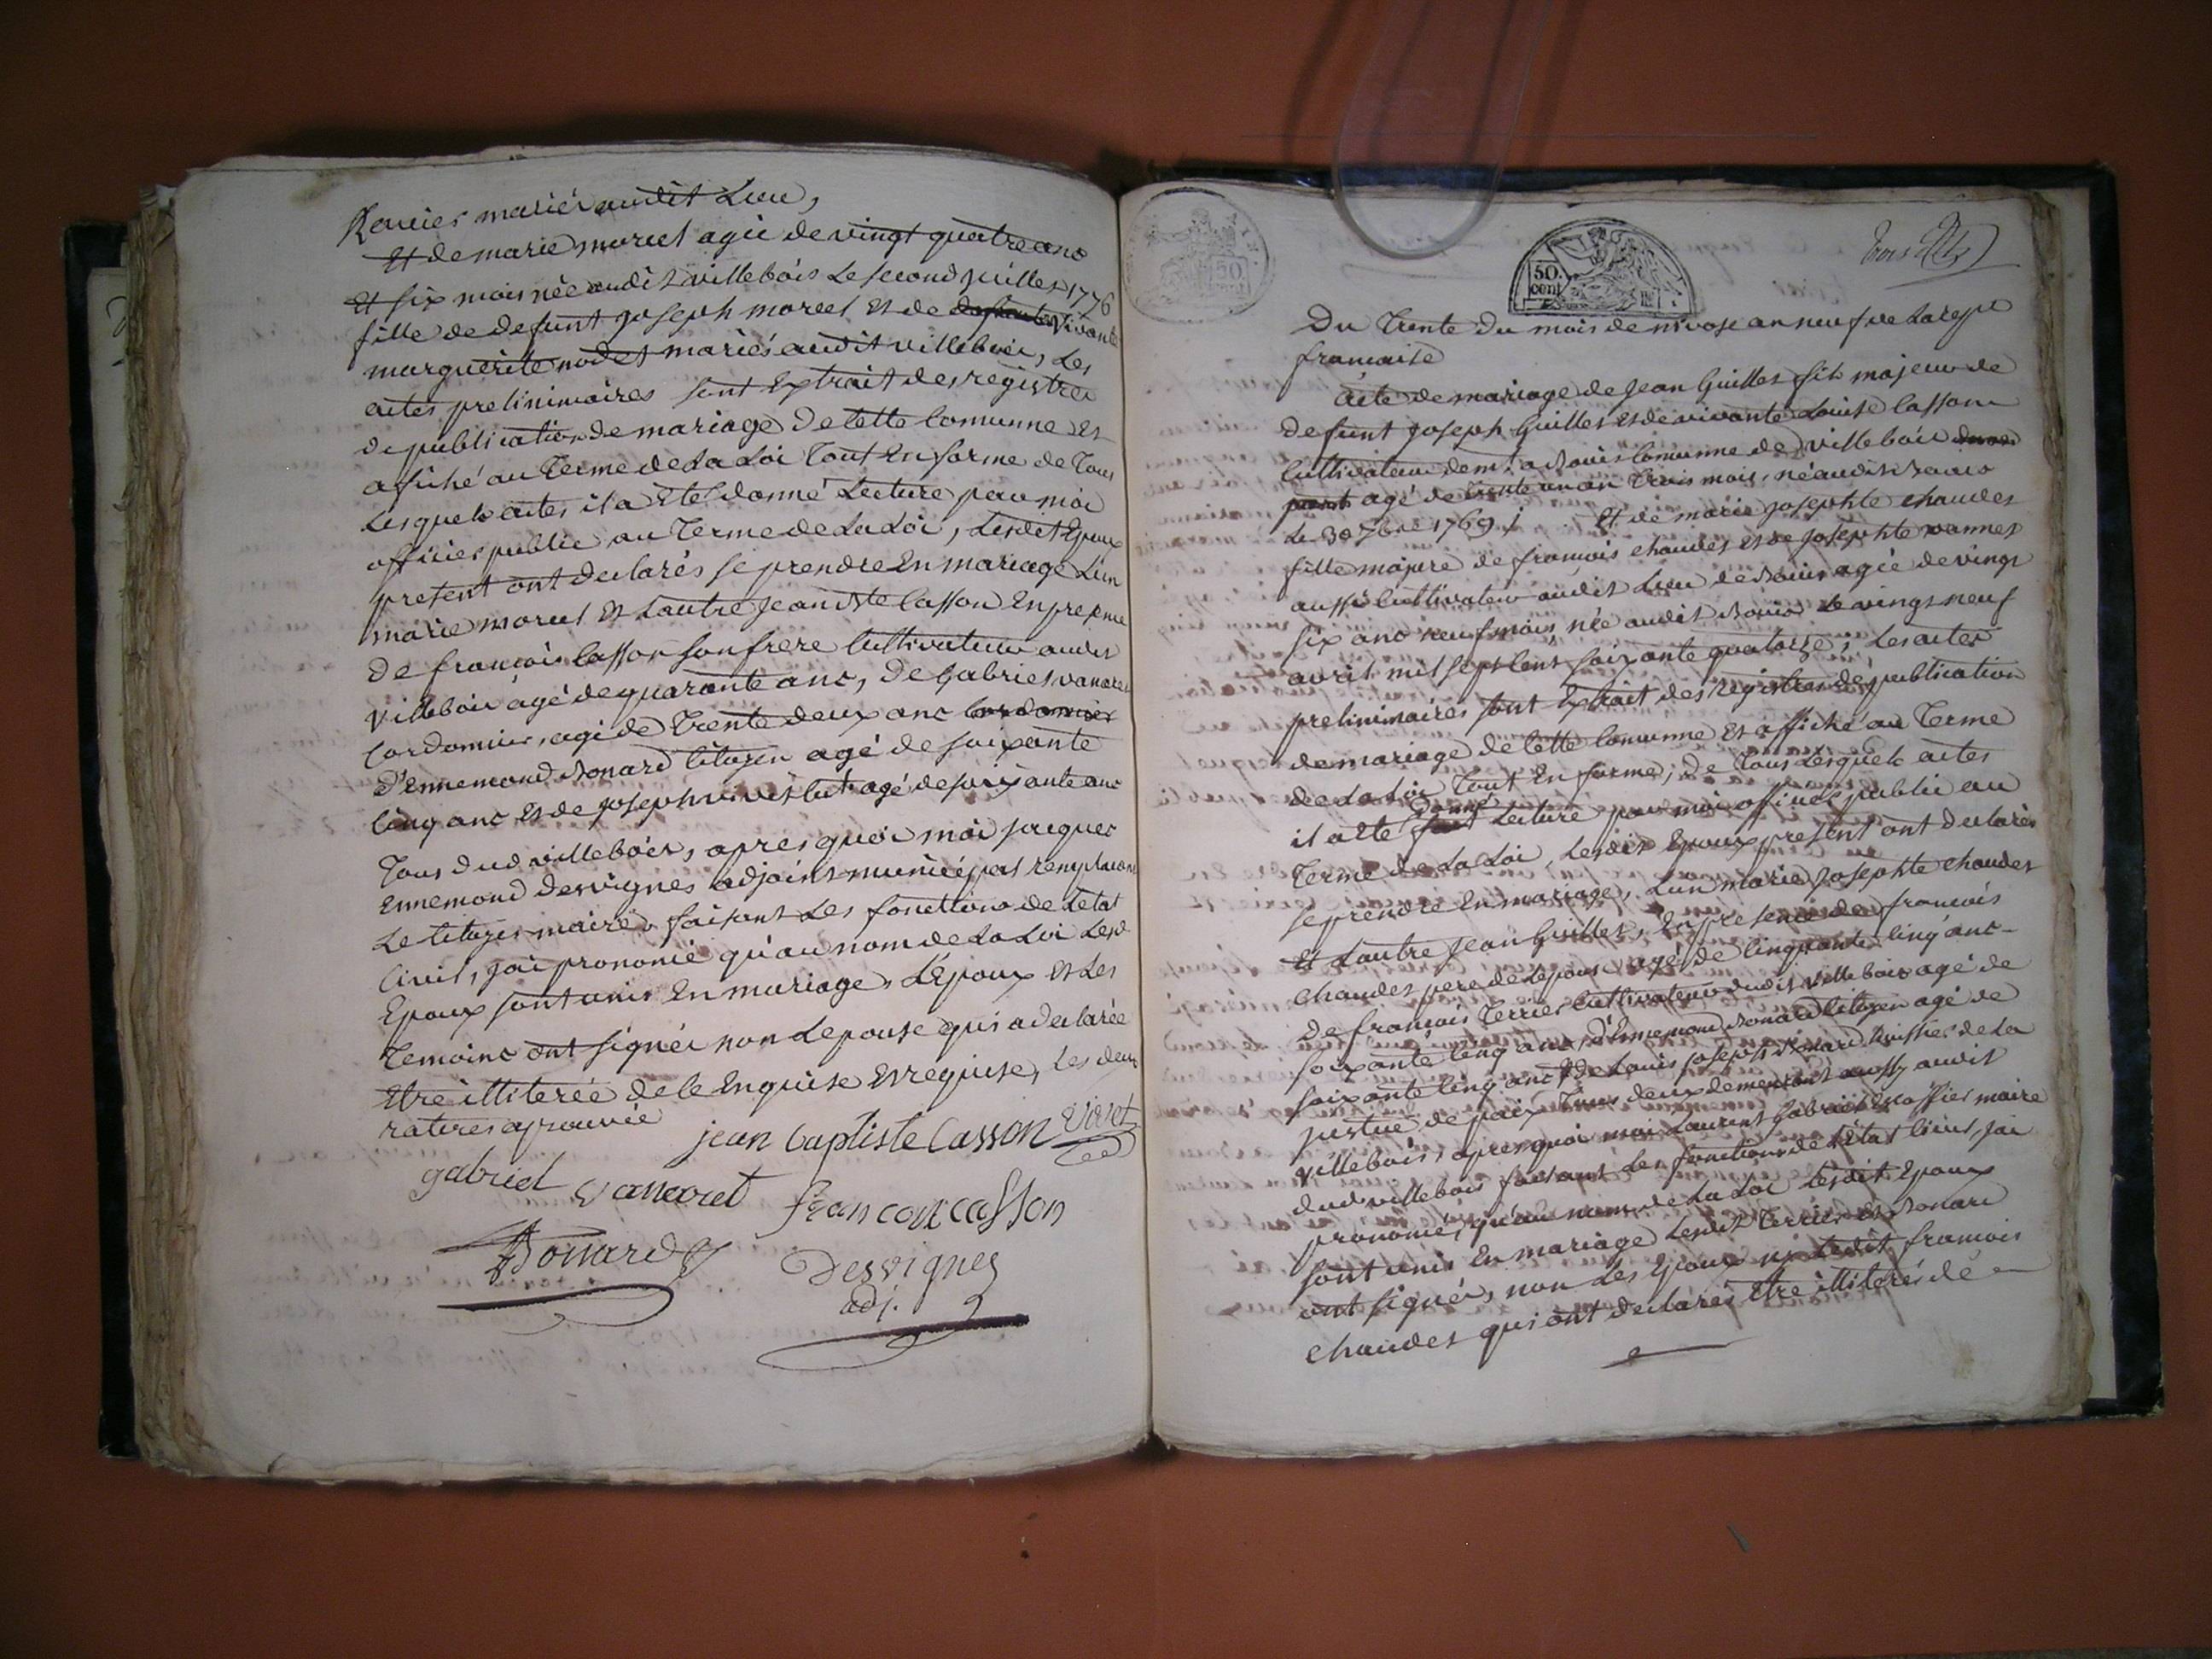 Rouies mariés audit Lieu,
Et de marie morel agée de vingt quatre ans
Et six mois née audit villebois Le second Juillet 1776
fille de defunt joseph morel et de defunte vivante
marguerite nodet mariés audit villebois, Les
actes preliminaires sont Extrait des registres
de publication de mariage de cette Comunne et
afiché au Terme de La Loi Tout En forme de Tous
Lesquels actes il a Eté donné Lecture par moi
officier public au Terme de La Loi, Lesdit Epoux
present ont declarés se prendre En mariage L'un
marie morel Et L'autre jean bte Casson En presence
de francois Casson son frere Cultivateur audit
villebois agé de quarante ans, de Gabriel vanaret
Cordonnier, agé de Trente deux ans Cordonnier
d'Ennemond Bonard Citoyen agé de soixante
Cinq ans et de joseph vivet Cult. agé de soixante ans
Tous dud villebois, apres quoi moi jacques
Ennemond desvignes adjoint municipal remplacant
Le Citoyen maire faisant Les fonctions de L'etat
Civil, j'ai prononcé qu'au nom de La Loi Lesd
Epoux sont unis En mariage, L'epoux et Les
Temoins ont signés non L'epouse qui a declarée
Etre illiterée de ce Enquise et requise, Les deux
ratures aprouvée
jean baptiste Casson Vivet
gabriel vanaret francois casson
Bonard Desvignes
adj.
50
50.
cent
Du Trente du mois de nivose an neuf de La repe
francaise
Acte de mariage de jean Guillet fils majeur de
defunt joseph Guillet et de vivante Louise Casson
Cultivateur dem. a Bouis Comunne de villebois
part agé de Trente un an Trois mois, né audit Bouis
Le 30 7bre 1769 / Et de marie josephte chaudet
fille majure de francois chaudet et de josephte vannet
aussi Cultivateur audit Lieu de Bouis agée de vingt
six ans neuf mois, née audit Bouis Le vingt neuf
avril mil sept Cent soixante quatorze, Les actes
preliminaires sont Extrait des registres de publication
de mariage de Cette Comunne Et affiché au Terme
de La Loi Tout En forme, de Tous Lesquels actes
il a Eté fait donné Lecture par moi officier public au
Terme de La Loi, Lesdit Epoux present ont declarés
se prendre En mariage, L'un marie josephte chaudet
Et L'autre jean Guillet, En presence de francois
chaudet pere de L'epouse agé de Cinquante Cinq ans
de francois Terrier Cultivateur dudit villebois agé de
soixante Cinq ans, d'Ennemond Bonard Citoyen agé de
soixante Cinq ans et de Louis joseph Bonard huissier de La
justice de paix Tous deux demeurant aussy audit
villebois, apres quoi moi Laurent Gabriel Escoffier maire
dud villebois faisant Les fonctions de L'Etat Civil, j'ai
prononcé, qu'au nom de La Loi Lesdit Epoux
sont unis En mariage Lesdit Terrier et Bonard
ont signés, non Les Epoux ni Ledit francois
chaudet qui ont declarés Etre illiterés de